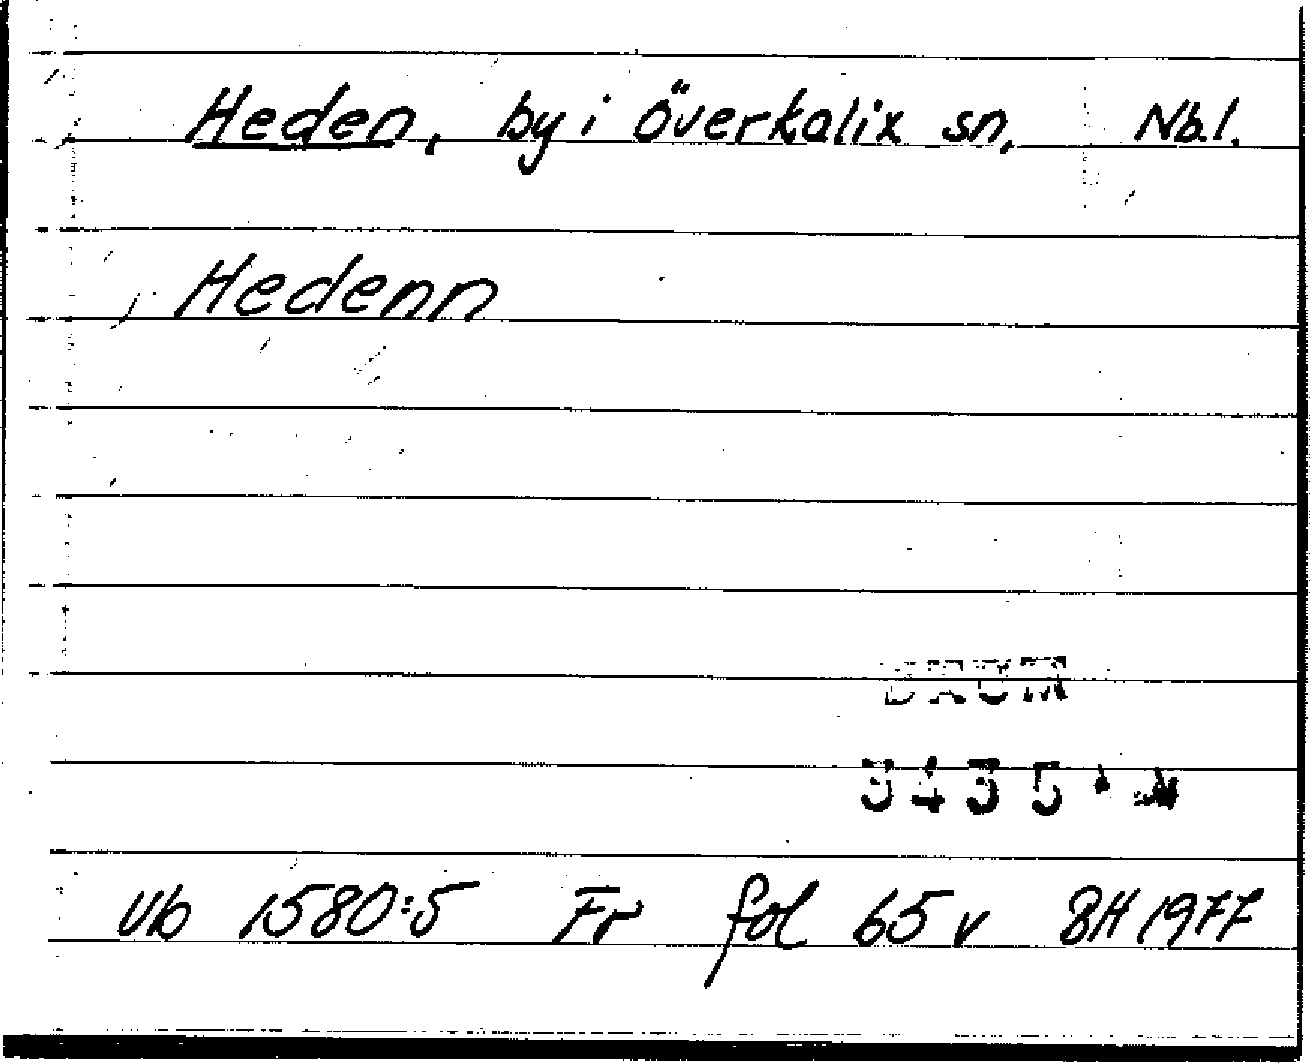 Heden, by i Överkalix sn. Nb.l.
Hedenn
DAUM
3435
Vb 1580:5 Fr fol 65 v BH 1977